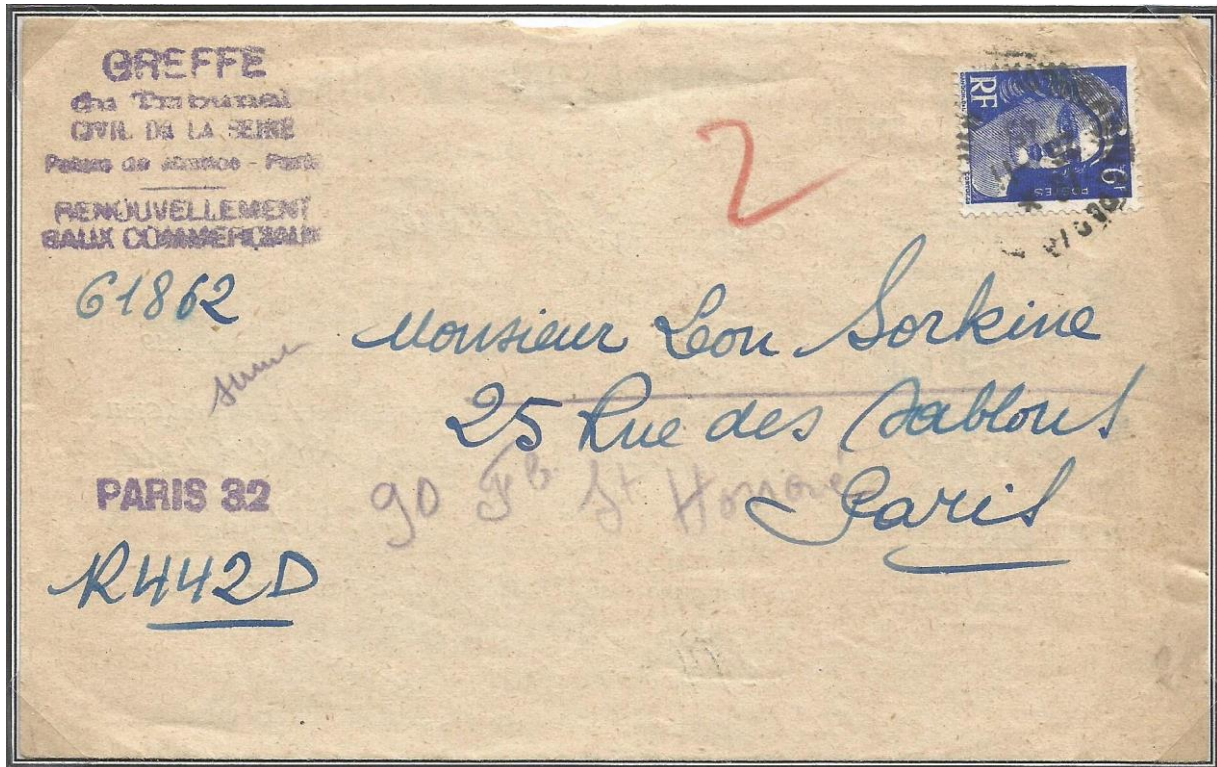 GREFFE
du Tribunal
CIVIL DE LA SEINE
Palais de Justice - Paris
RENOUVELLEMENT
BAUX COMMERCIAUX
61862
2
RF
6F
POSTES
Monsieur Leon Sorkine
25 Rue des Sablons
Paris
90 Fb. St Honoré
PARIS 32
R442D